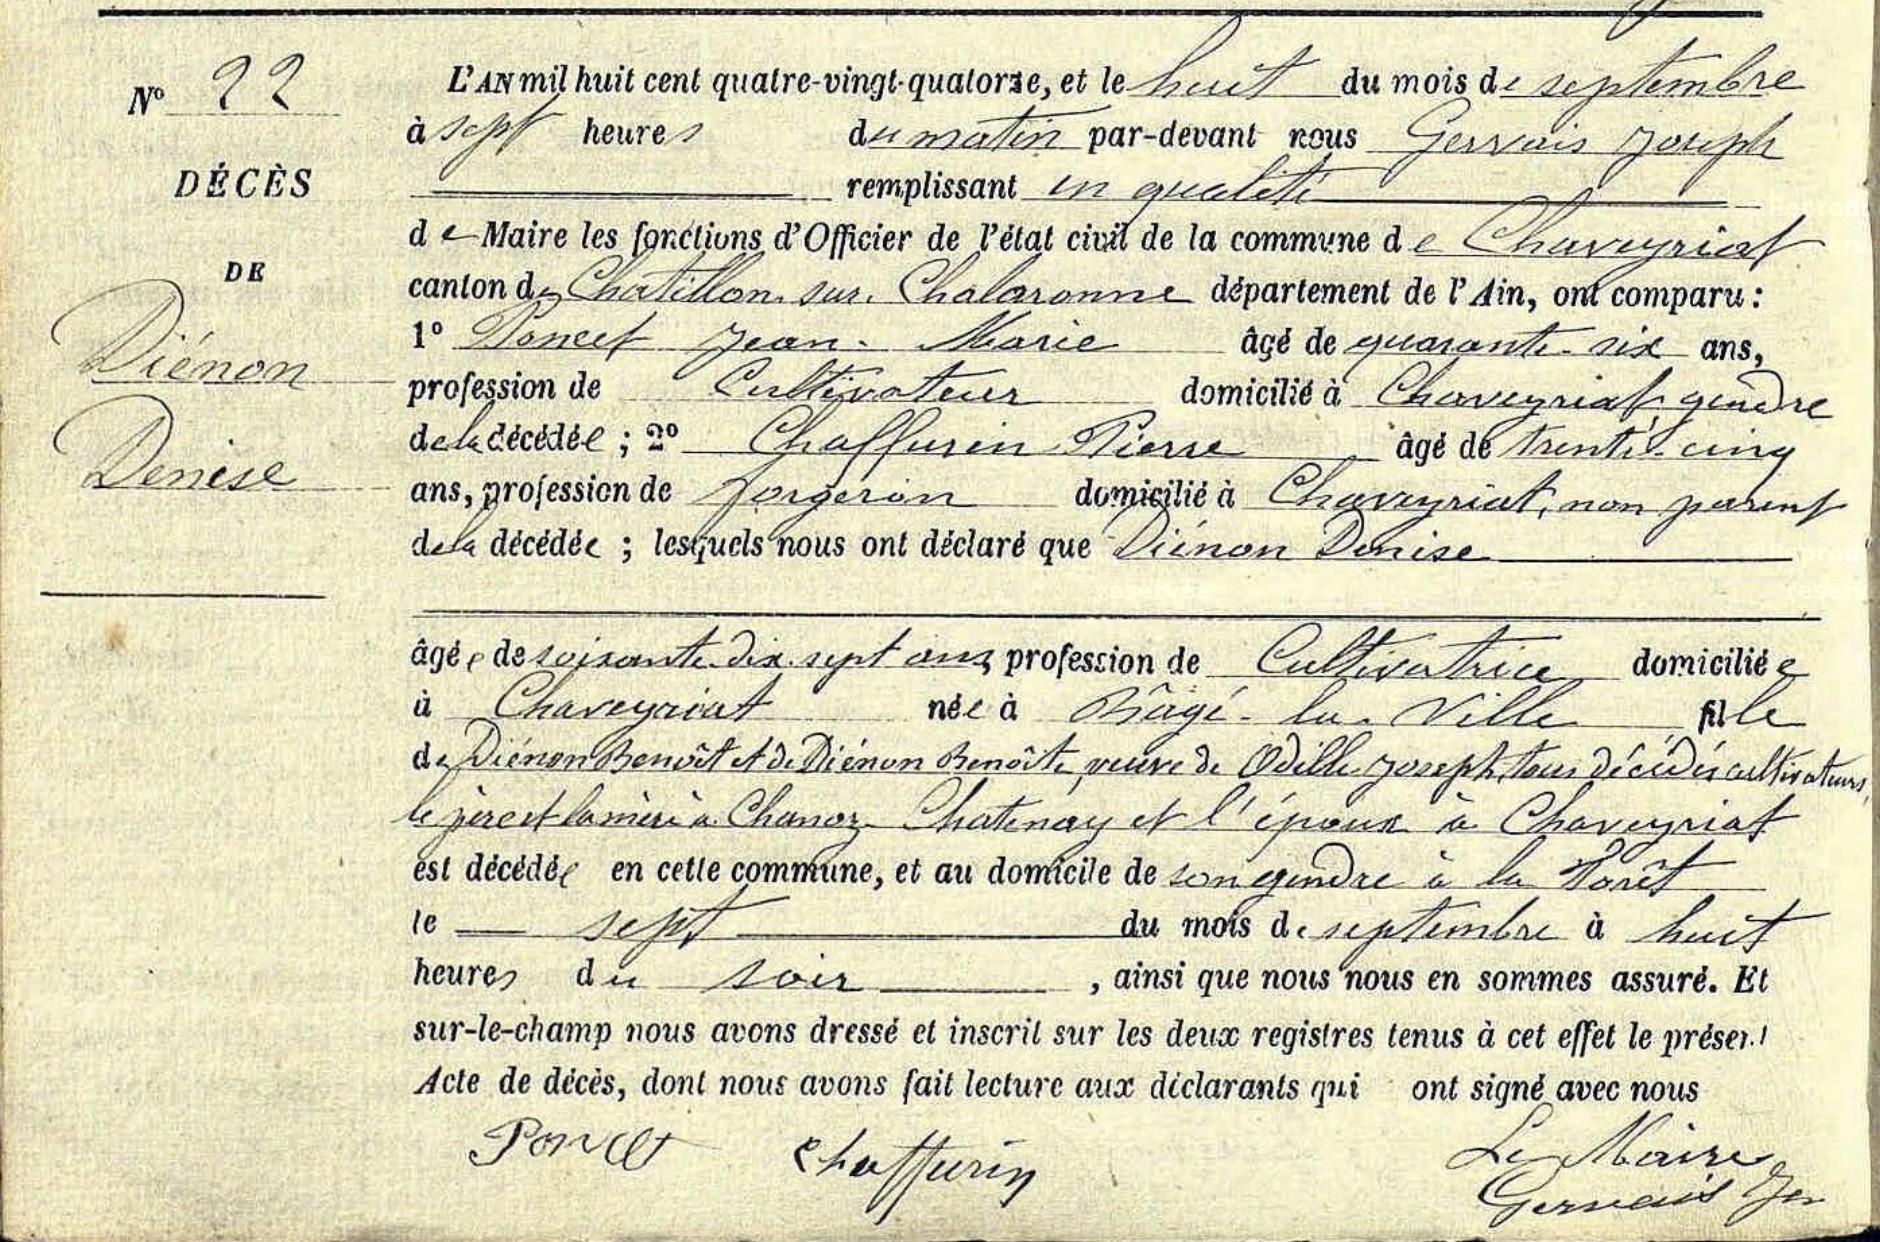 N° 22
DÉCÈS
DE
Diénon
Denise
L'AN mil huit cent quatre-vingt-quatorze, et le huit du mois de septembre
à sept heures du matin par-devant nous Gervais Joseph
remplissant en qualité
de Maire les fonctions d'Officier de l'état civil de la commune de Chaveyriat
canton de Chatillon sur Chalaronne département de l'Ain, ont comparu :
1° Poncet Jean-Marie âgé de quarante-six ans,
profession de Cultivateur domicilié à Chaveyriat, gendre
de la décédée ; 2° Chaffurin Pierre âgé de trente-cinq
ans, profession de forgeron domicilié à Chaveyriat, non parent
de la décédée ; lesquels nous ont déclaré que Diénon Denise
âgée de soixante-dix-sept ans, profession de Cultivatrice domiciliée
à Chaveyriat née à Bâgé-la-Ville fille
de Diénon Benoît et de Diénon Benoîte, veuve de Odille Joseph, tous décédés cultivateurs,
le père et la mère à Chanoz-Chatenay et l'époux à Chaveyriat
est décédée en cette commune, et au domicile de son gendre à la Forêt
le sept du mois de septembre à huit
heures du soir, ainsi que nous nous en sommes assuré. Et
sur-le-champ nous avons dressé et inscrit sur les deux registres tenus à cet effet le présent
Acte de décès, dont nous avons fait lecture aux déclarants qui ont signé avec nous
Poncet Chaffurin Le Maire
Gervais Jh